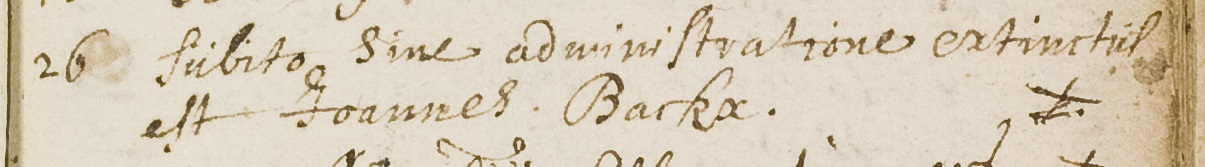 26 subito sine administratione extinctus
est Joannes Backx.